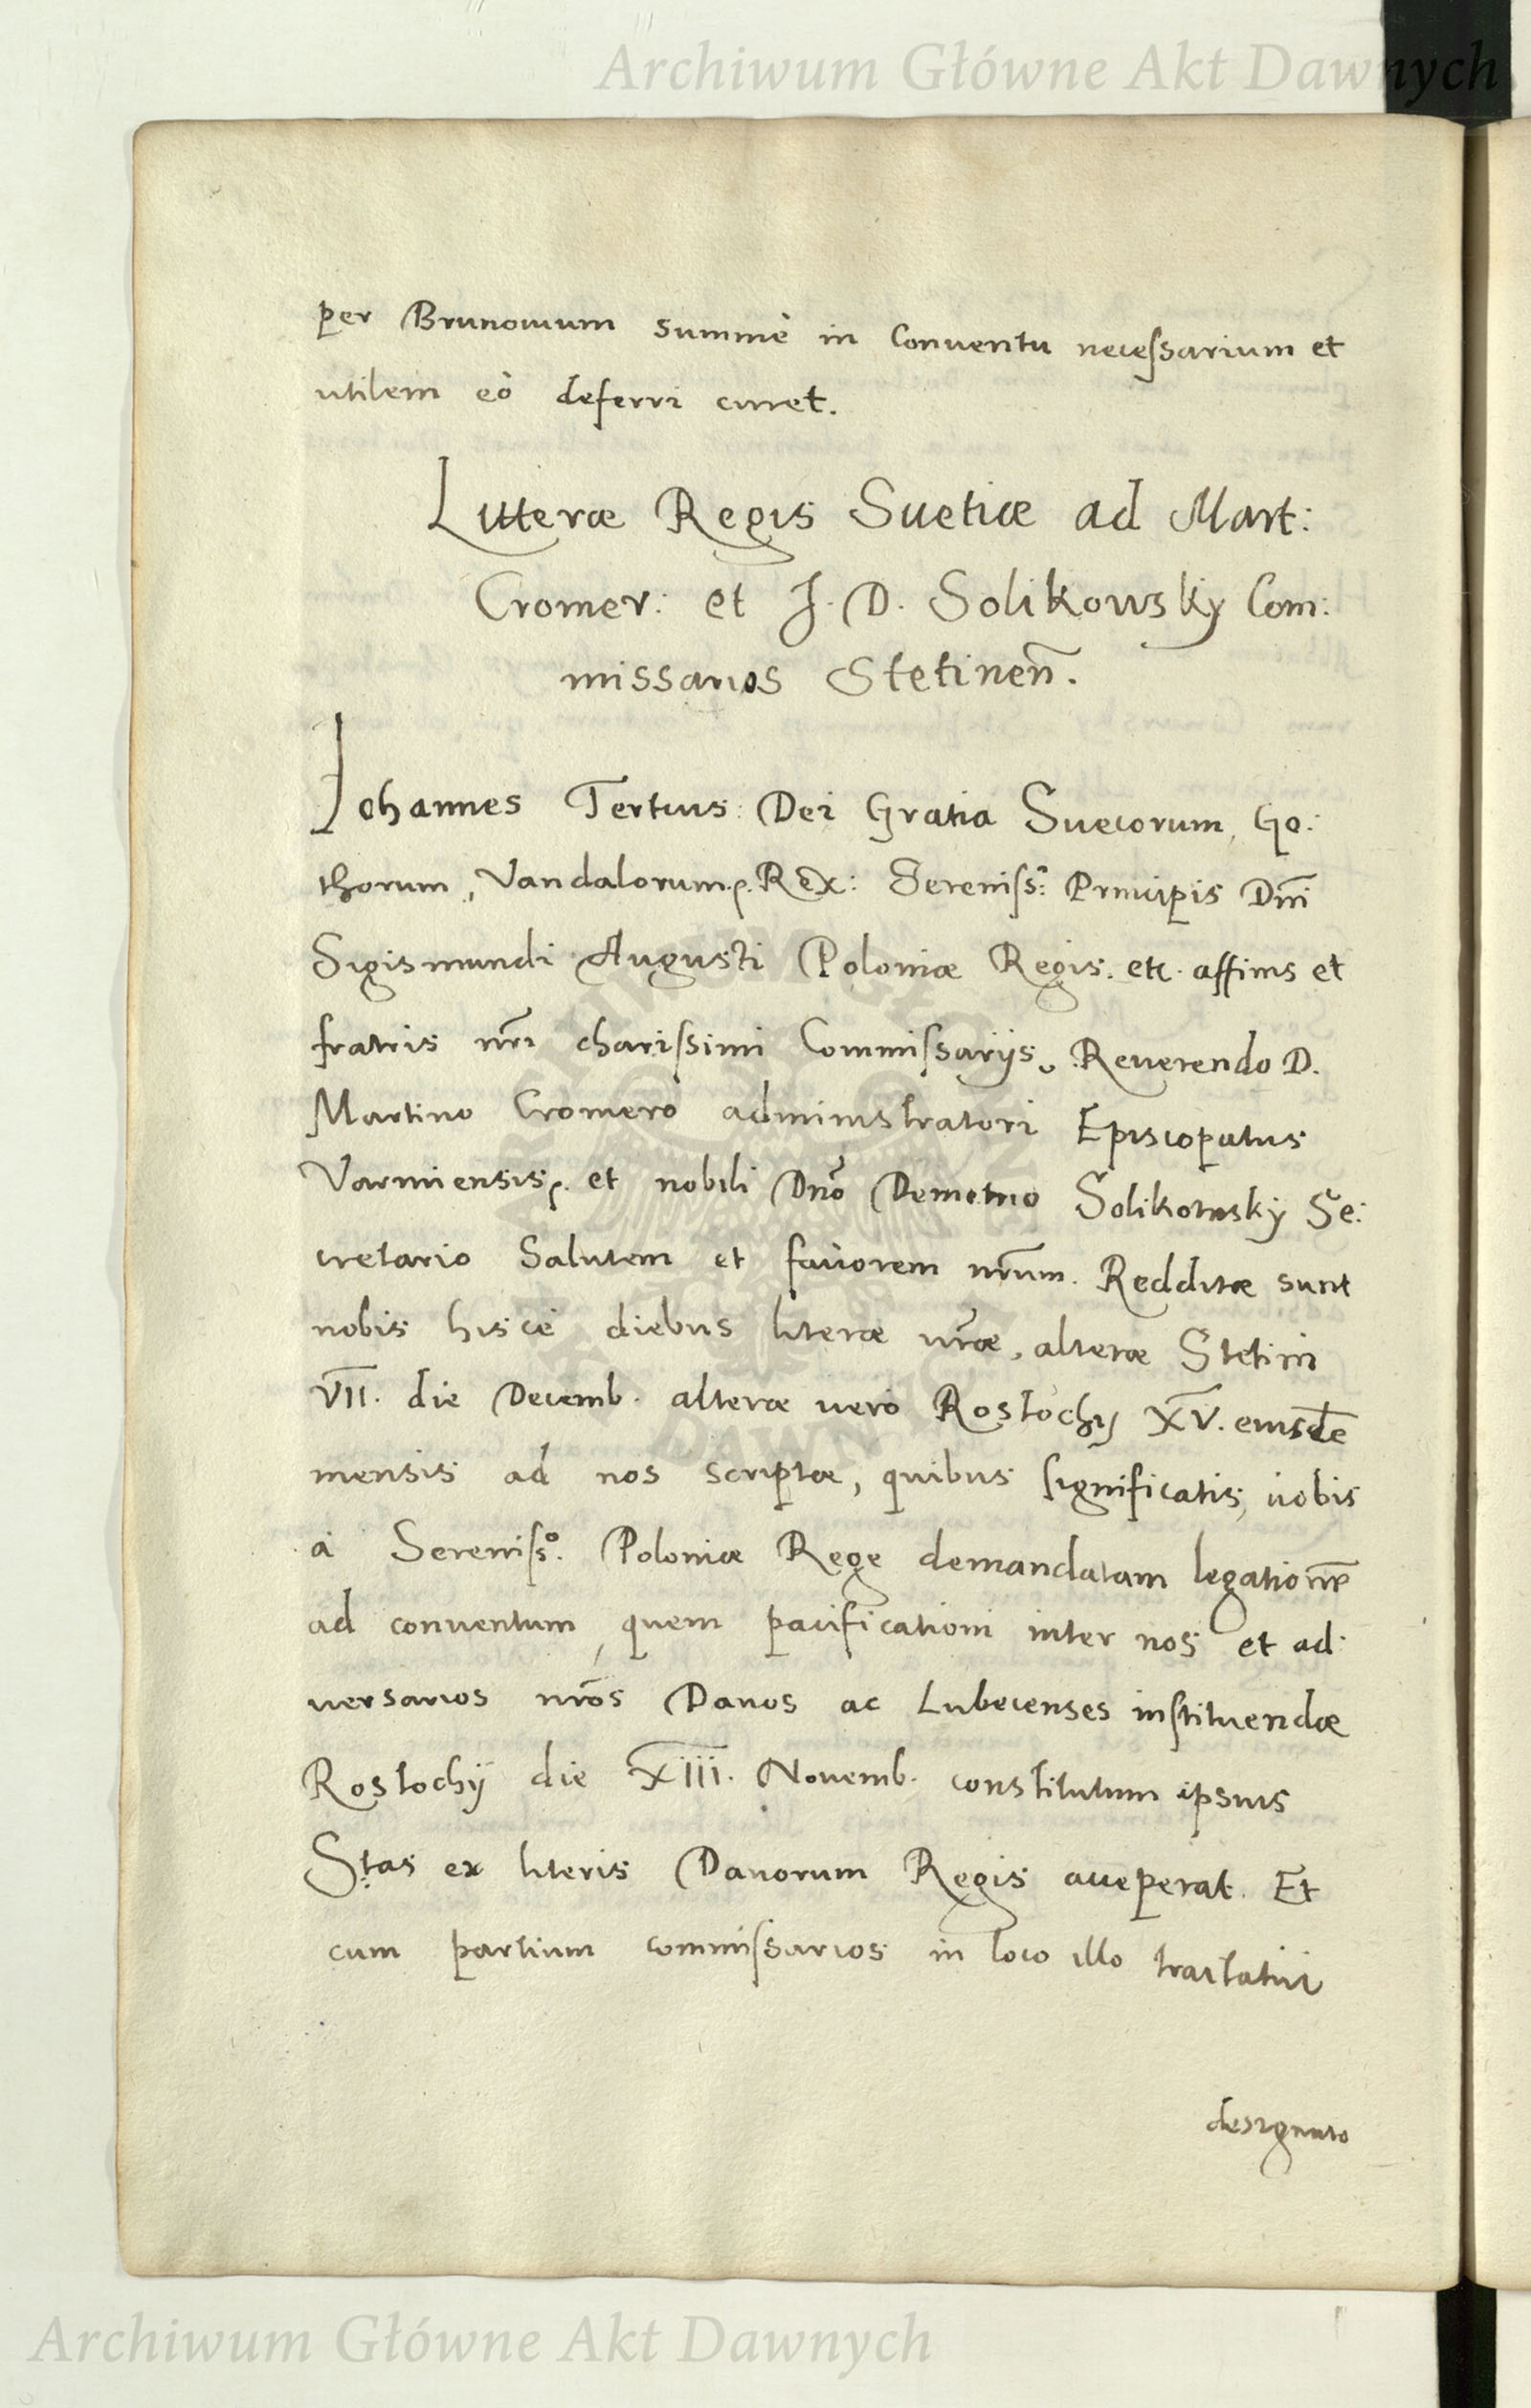 Archiwum Główne Akt Dawnych
per Brunouium summè in Conuentu necessarium et
utilem eò deferri curet.
Litteræ Regis Suetiæ ad Mart:
Cromer: et J. D. Solikowsky Com:
missarios Stetinen̄.
Johannes Tertius: Dei Gratia Suecorum, Go:
thorum, Vandalorum. Rex: Sereniss: Principis Dn̄i
Sigismundi Augusti Poloniæ Regis. etc. affinis et
fratris nr̄i charissimi Commissarijs, Reuerendo D.
Martino Cromero administratori Episcopatus
Varmiensis, et nobili Dn̄o Demetrio Solikowsky Se:
cretario Salutem et fauorem nr̄um. Redditæ sunt
nobis hisce diebus literæ vr̄æ, alteræ Stetini
VII. die Decemb. alteræ uero Rostochij XV. eiusdē
mensis ad nos scriptæ, quibus significatis, uobis
à Sereniss°. Poloniæ Rege demandatam legationē
ad conuentum, quem pacificationi inter nos et ad:
uersarios nr̄os Danos ac Lubecenses instituendæ
Rostochij die XIII. Nouemb. constitutum ipsius
S.tas ex literis Danorum Regis acceperat. Et
cum partium commissarios in loco illo tractatui
designato
ARCHIWUM GŁÓWNE AKT DAWNYCH
Archiwum Główne Akt Dawnych